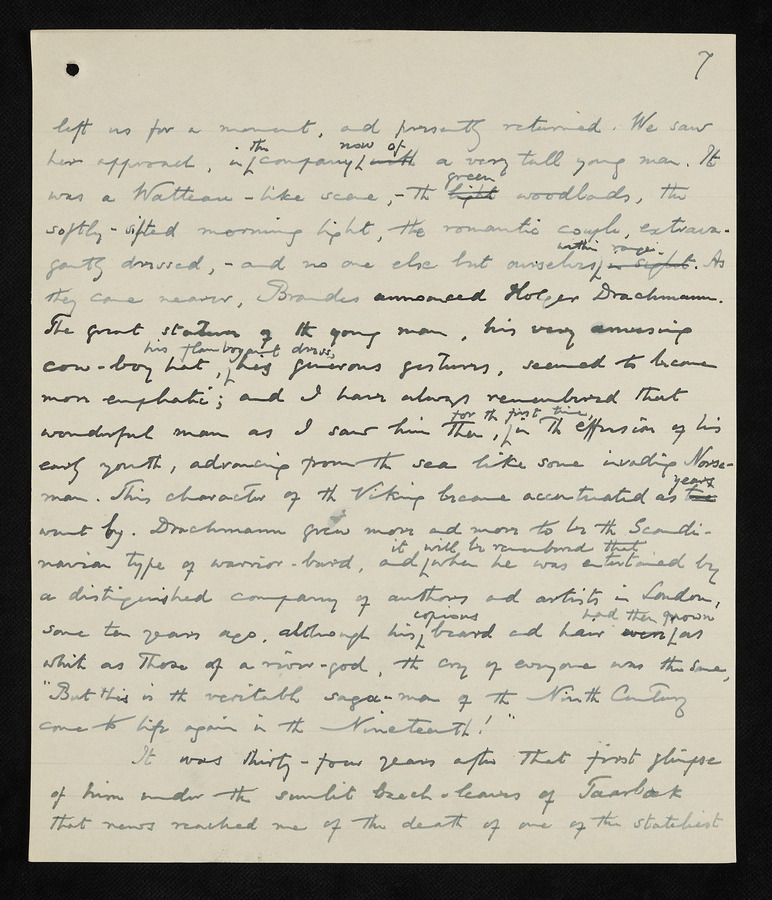 7
left us for a moment, and presently returned. We saw
the now of
her approach, in company with a very tall young man. It
green
was a Watteau-like scene, - the light woodlands, the
softly-sifted morning light, the romantic couple, extrava-
within range.
gantly dressed, - and no one else but ourselves in sight. As
they came nearer, Brandes announced Holger Drachmann.
The great stature of the young man, his very amusing
his flamboyant dress,
cow-boy hat, his generous gestures, seemed to become
more emphatic; and I have always remembered that
for the first time,
wonderful man as I saw him then, in the effusion of his
early youth, advancing from the sea like some invading Norse-
years
man. This character of the Viking became accentuated as time
went by. Drachmann grew more and more to be the Scandi-
it will be remembered that
navian type of warrior-bard, and when he was entertained by
a distinguished company of authors and artists in London,
copious had then grown
some ten years ago, although his beard and hair were as
white as those of a river-god, the cry of everyone was the same,
"But this is the veritable saga-man of the Ninth Century
come to life again in the Nineteenth!"
It was thirty-four years after that first glimpse
of him under the sunlit beech-leaves of Taarbæk
that news reached me of the death of one of the stateliest